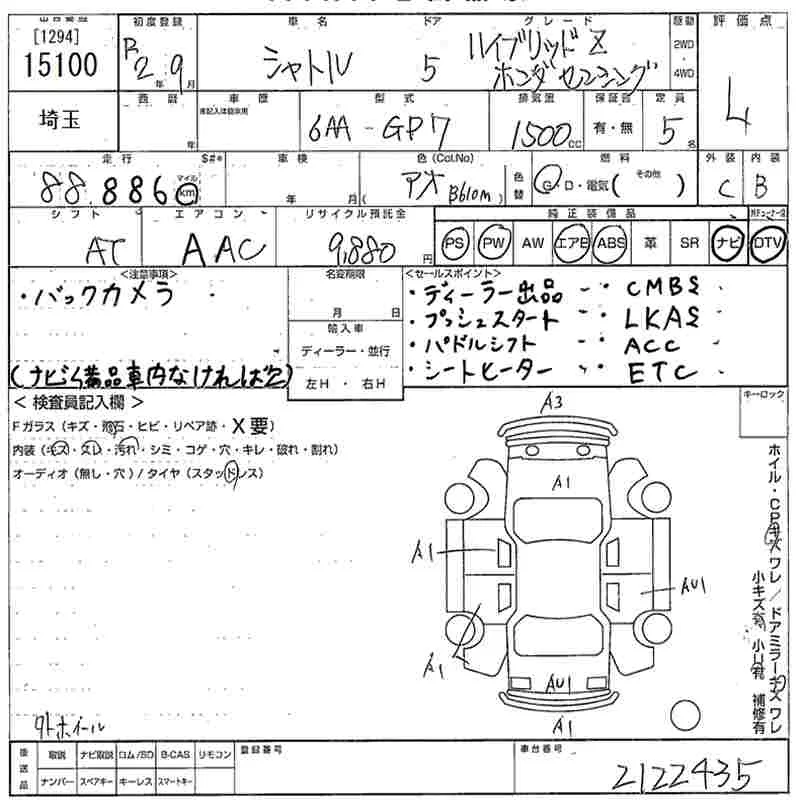 [1294]
15100
初度登録
R2 9
年 月
車名
シャトル
ドア
5
グレード
ハイブリッド Z
ホンダセンシング
駆動
2WD
4WD
評価点
4
埼玉
西暦
年
車歴
型式
6AA - GP7
排気量
1500cc
保証書
有・無
定員
5名
走行
88,886
マイル
km
S#*
車検
年 月
色(Col.No)
アオ B610M
色替
燃料
G・D・電気( その他 )
外装
C
内装
B
シフト
AT
エアコン
AAC
リサイクル預託金
9,880円
純正装備品
PS PW AW エアB ABS 革 SR ナビ DTV
<注意事項>
・バックカメラ
(ナビ 備品車内なければ欠)
名変期限
月 日
輸入車
ディーラー・並行
左H ・ 右H
<セールスポイント>
・ディーラー出品 ・CMBS
・プッシュスタート ・LKAS
・パドルシフト ・ACC
・シートヒーター ・ETC
<検査員記入欄>
Fガラス(キズ・飛石・ヒビ・リペア跡・X要)
内装(キズ・スレ・汚れ・シミ・コゲ・穴・キレ・破れ・割れ)
オーディオ(無し・穴)/タイヤ(スタッドレス)
キーロック
A3
A1
A1
AU1
A1
AU1
A1
ホイル・CPキズワレ/ドアミラーキズワレ
小キズ有 小凹有 補修有
外ホイール
後送品
取説 ナビ取説 ロム/SD B-CAS リモコン
ナンバー スペアキー キーレス スマートキー
登録番号
車台番号
2122435